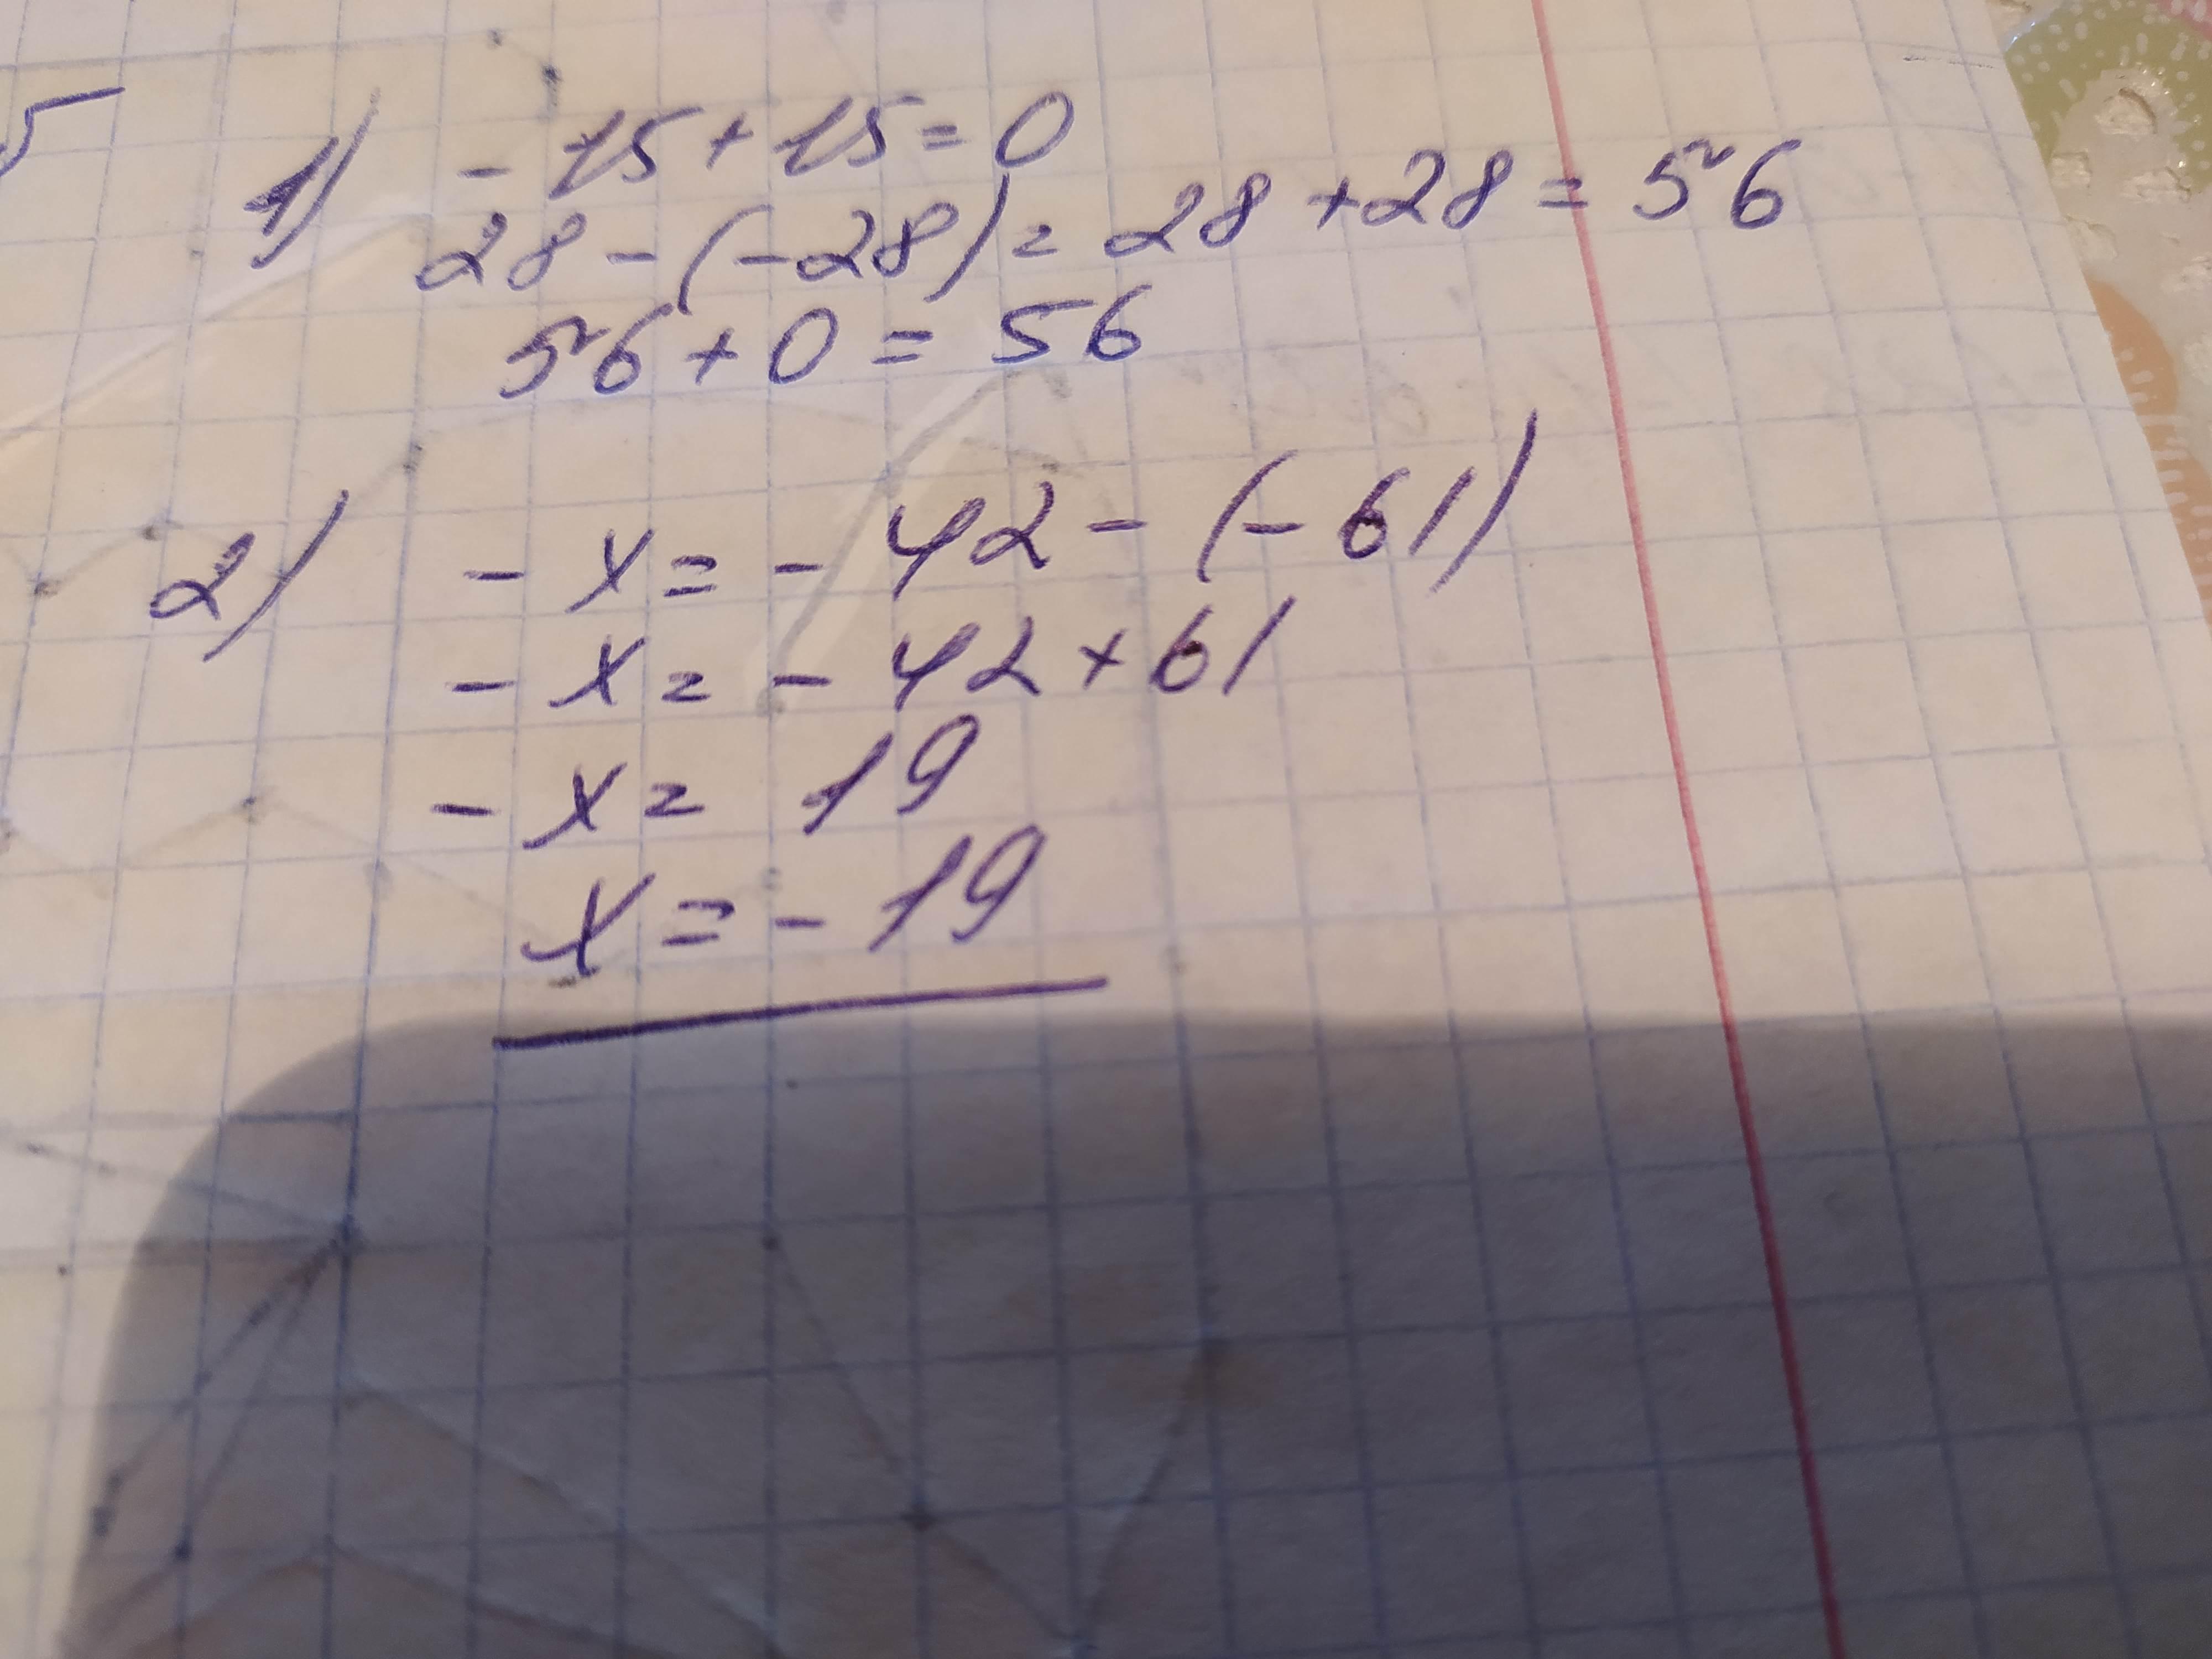 5
1) - 15 + 15 = 0
28 - (-28) = 28 + 28 = 56
56 + 0 = 56
2) - x = - 42 - (- 61)
- x = - 42 + 61
- x = 19
x = - 19